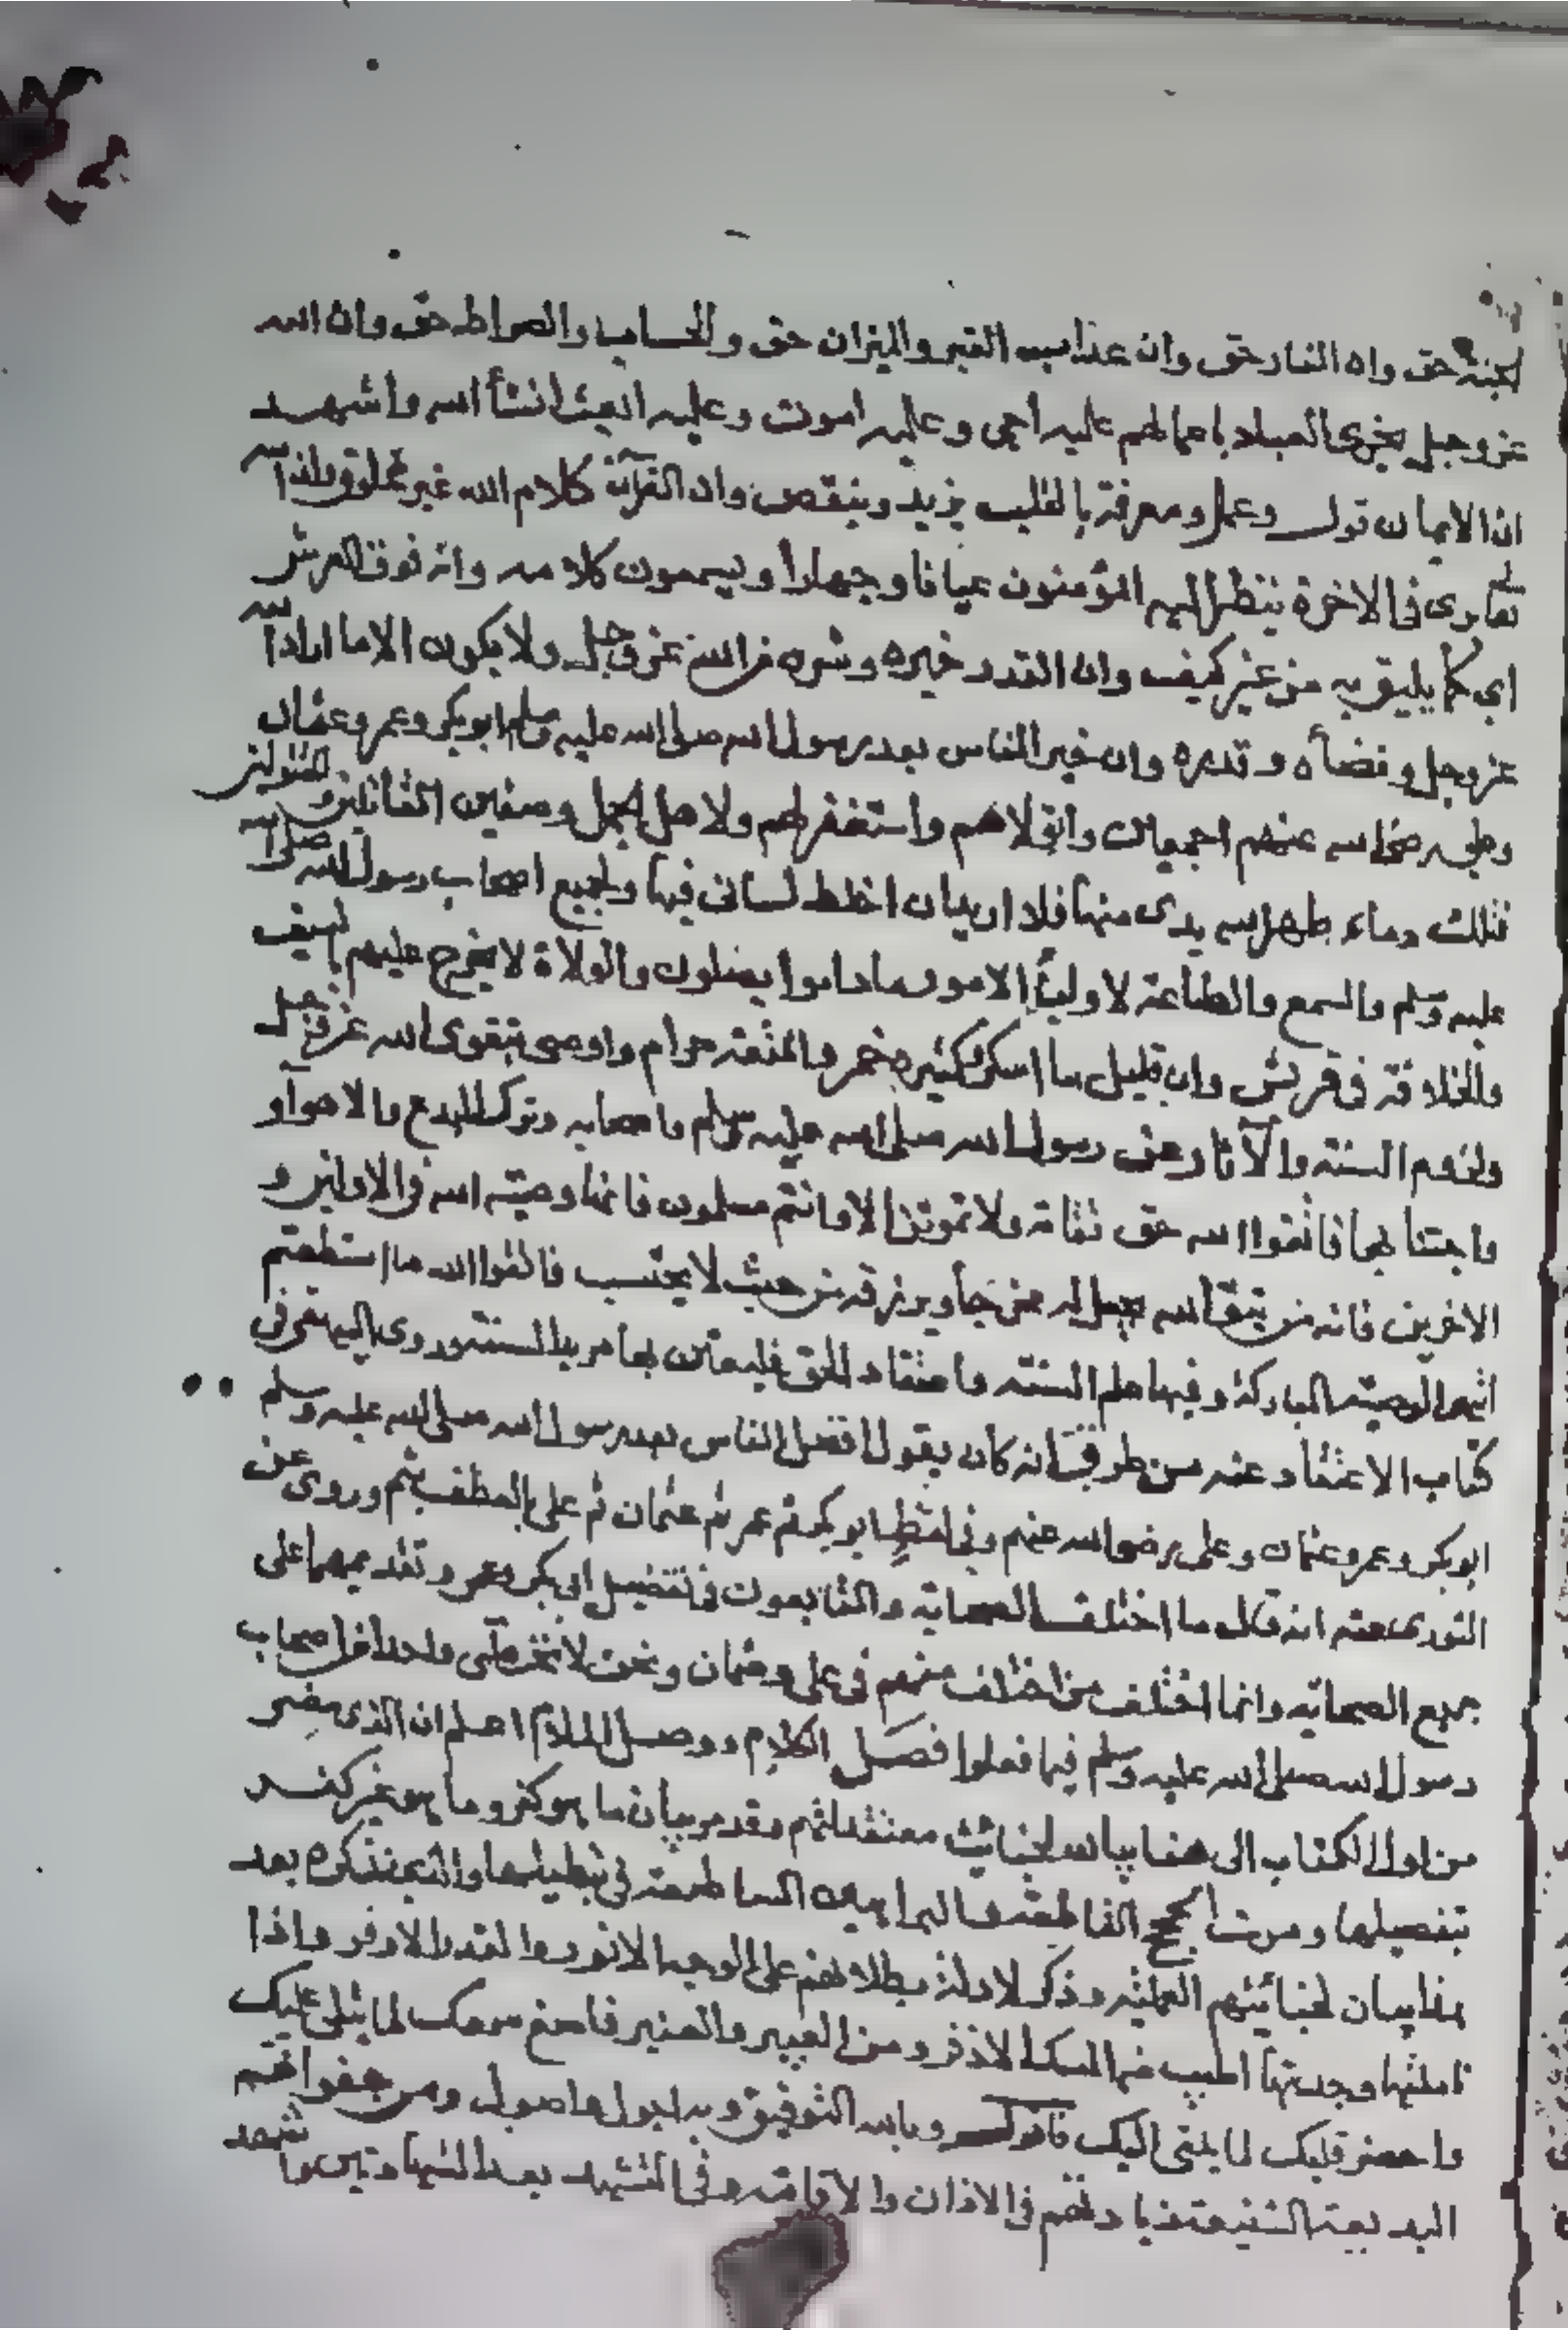 الجنة حق وان النار حق وان عذاب القبر والميزان حق والحساب والصراط حق وان الله
عز وجل يجزى العباد باعمالهم عليه احيى وعليه اموت وعليه ابعث انشأ الله واشهد
ان الايمان قول وعمل ومعرفة بالقلب يزيد وينقص وان القرآن كلام الله غير مخلوق وان الله
تعالى يرى فى الاخرة ينظر اليه المؤمنون عيانا وجهارا ويسمعون كلامه وانه فوق العرش
اى كما يليق به من غير كيف وان القدر خيره وشره من الله عز وجل ولا يكون الا ما اراد الله
عز وجل وقضأه وقدره وان خير الناس بعد رسول الله صلى الله عليه وسلم ابو بكر وعمر وعثمان
وعلى رضى الله عنهم اجمعين واتولاهم واستغفر لهم ولاهل الجمل وصفين القاتلين و المقتولين
تلك دماء طهر الله يدى منها فلا اريد ان اخلط لسانى فيها ولجميع اصحاب رسول الله صلى الله
عليه وسلم والسمع والطاعة لاولى الامور ماداموا يصلون والولاة لا يخرج عليهم بالسيف
والخلافة فى قريش وان قليل ما اسكر كثيره خمر والمتعة حرام واوصى بتقوى الله عز وجل
ولزوم السنة والآثار عن رسول الله صلى الله عليه وسلم واصحابه وترك البدع والاهوآ و
واجتنابها فاتقوا الله حق تقاته ولا تموتن الا وانتم مسلمون فانها وصية الله فى الاولين و
الاخرين فانه من يتق الله يجعل له مخرجا ويرزقه من حيث لا يحتسب فاتقوا الله ما استطعتم
انتهى الوصية المباركة وفيها علم السنة واعتقاد الحق فليعتن بها مريد السنة وروى البيهقى فى
كتاب الاعتقاد عنه من طرق انه كان يقول افضل الناس بعد رسول الله صلى الله عليه وسلم
ابو بكر وعمر وعثمان وعلى رضى الله عنهم وفى لفظ ابو بكر ثم عمر ثم عثمان ثم على وروى عن
الثورى عنه انه قال ما اختلف الصحابة والتابعون فى تفضيل ابى بكر وعمر وتقديمهما على
جميع الصحابة وانما اختلف من اختلف منهم فى على وعثمان ونحن لا نخطئ واحدا من اصحاب
رسول الله صلى الله عليه وسلم فيما فعلوا فصل الكلام ووصل الملام اعلم ان الذى مضى
من اول الكتاب الى هنا بيان لخبائث معتقداتهم وقد مر بيان ما هو كفر وما هو غير كفر
بتفصيلها ومرت الحجج القاطعة والبراهين الساطعة فى تبطيلها والذى نذكره بعد
هذا بيان لخبائثهم العملية وذكر لادلة بطلانهم على الوجه الانور والقدر الاوفر واذا
تاملتها وجدتها اطيب من المسك الاذفر ومن العبير والعنبر فاصغ سمعك لما يتلى عليك
واحضر قلبك لما يلقى اليك فاقول وبالله التوفيق وبه اجول واصول ومن هفواتهم
البديعة الشنيعة زيادتهم فى الاذان والاقامة وفى التشهد بعد الشهادتين واشهد